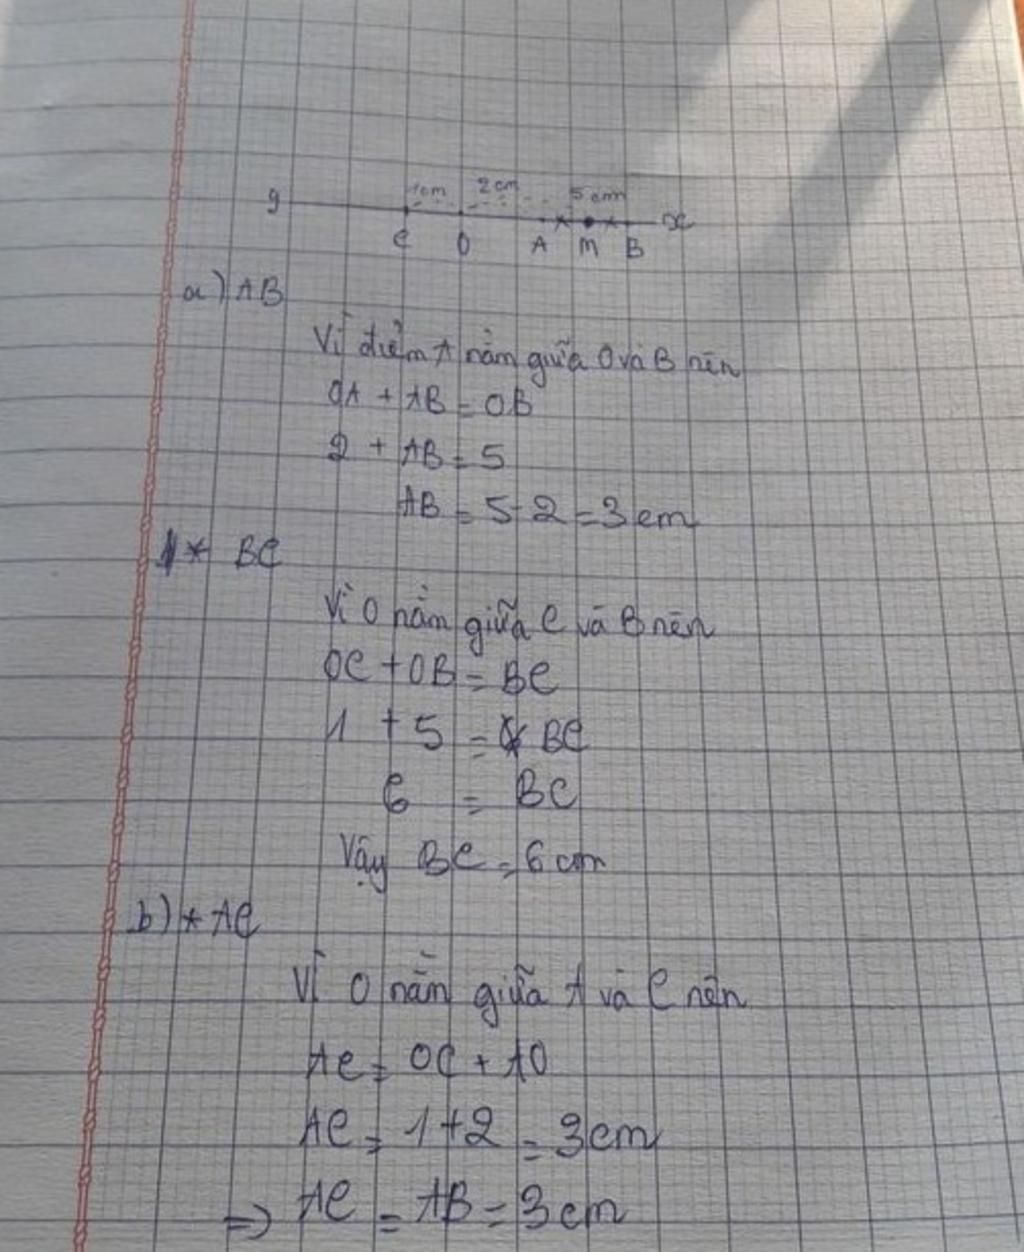 1cm 2cm 5cm
y x
C O A M B
a) AB
Vì điểm A nằm giữa O và B nên
OA + AB = OB
2 + AB = 5
AB = 5-2 = 3cm
* BC
Vì O nằm giữa C và B nên
OC + OB = BC
1 + 5 = BC
6 = BC
Vậy BC = 6cm
b) * AC
Vì O nằm giữa A và C nên
AC = OC + AO
AC = 1+2 = 3cm
=> AC = AB = 3cm